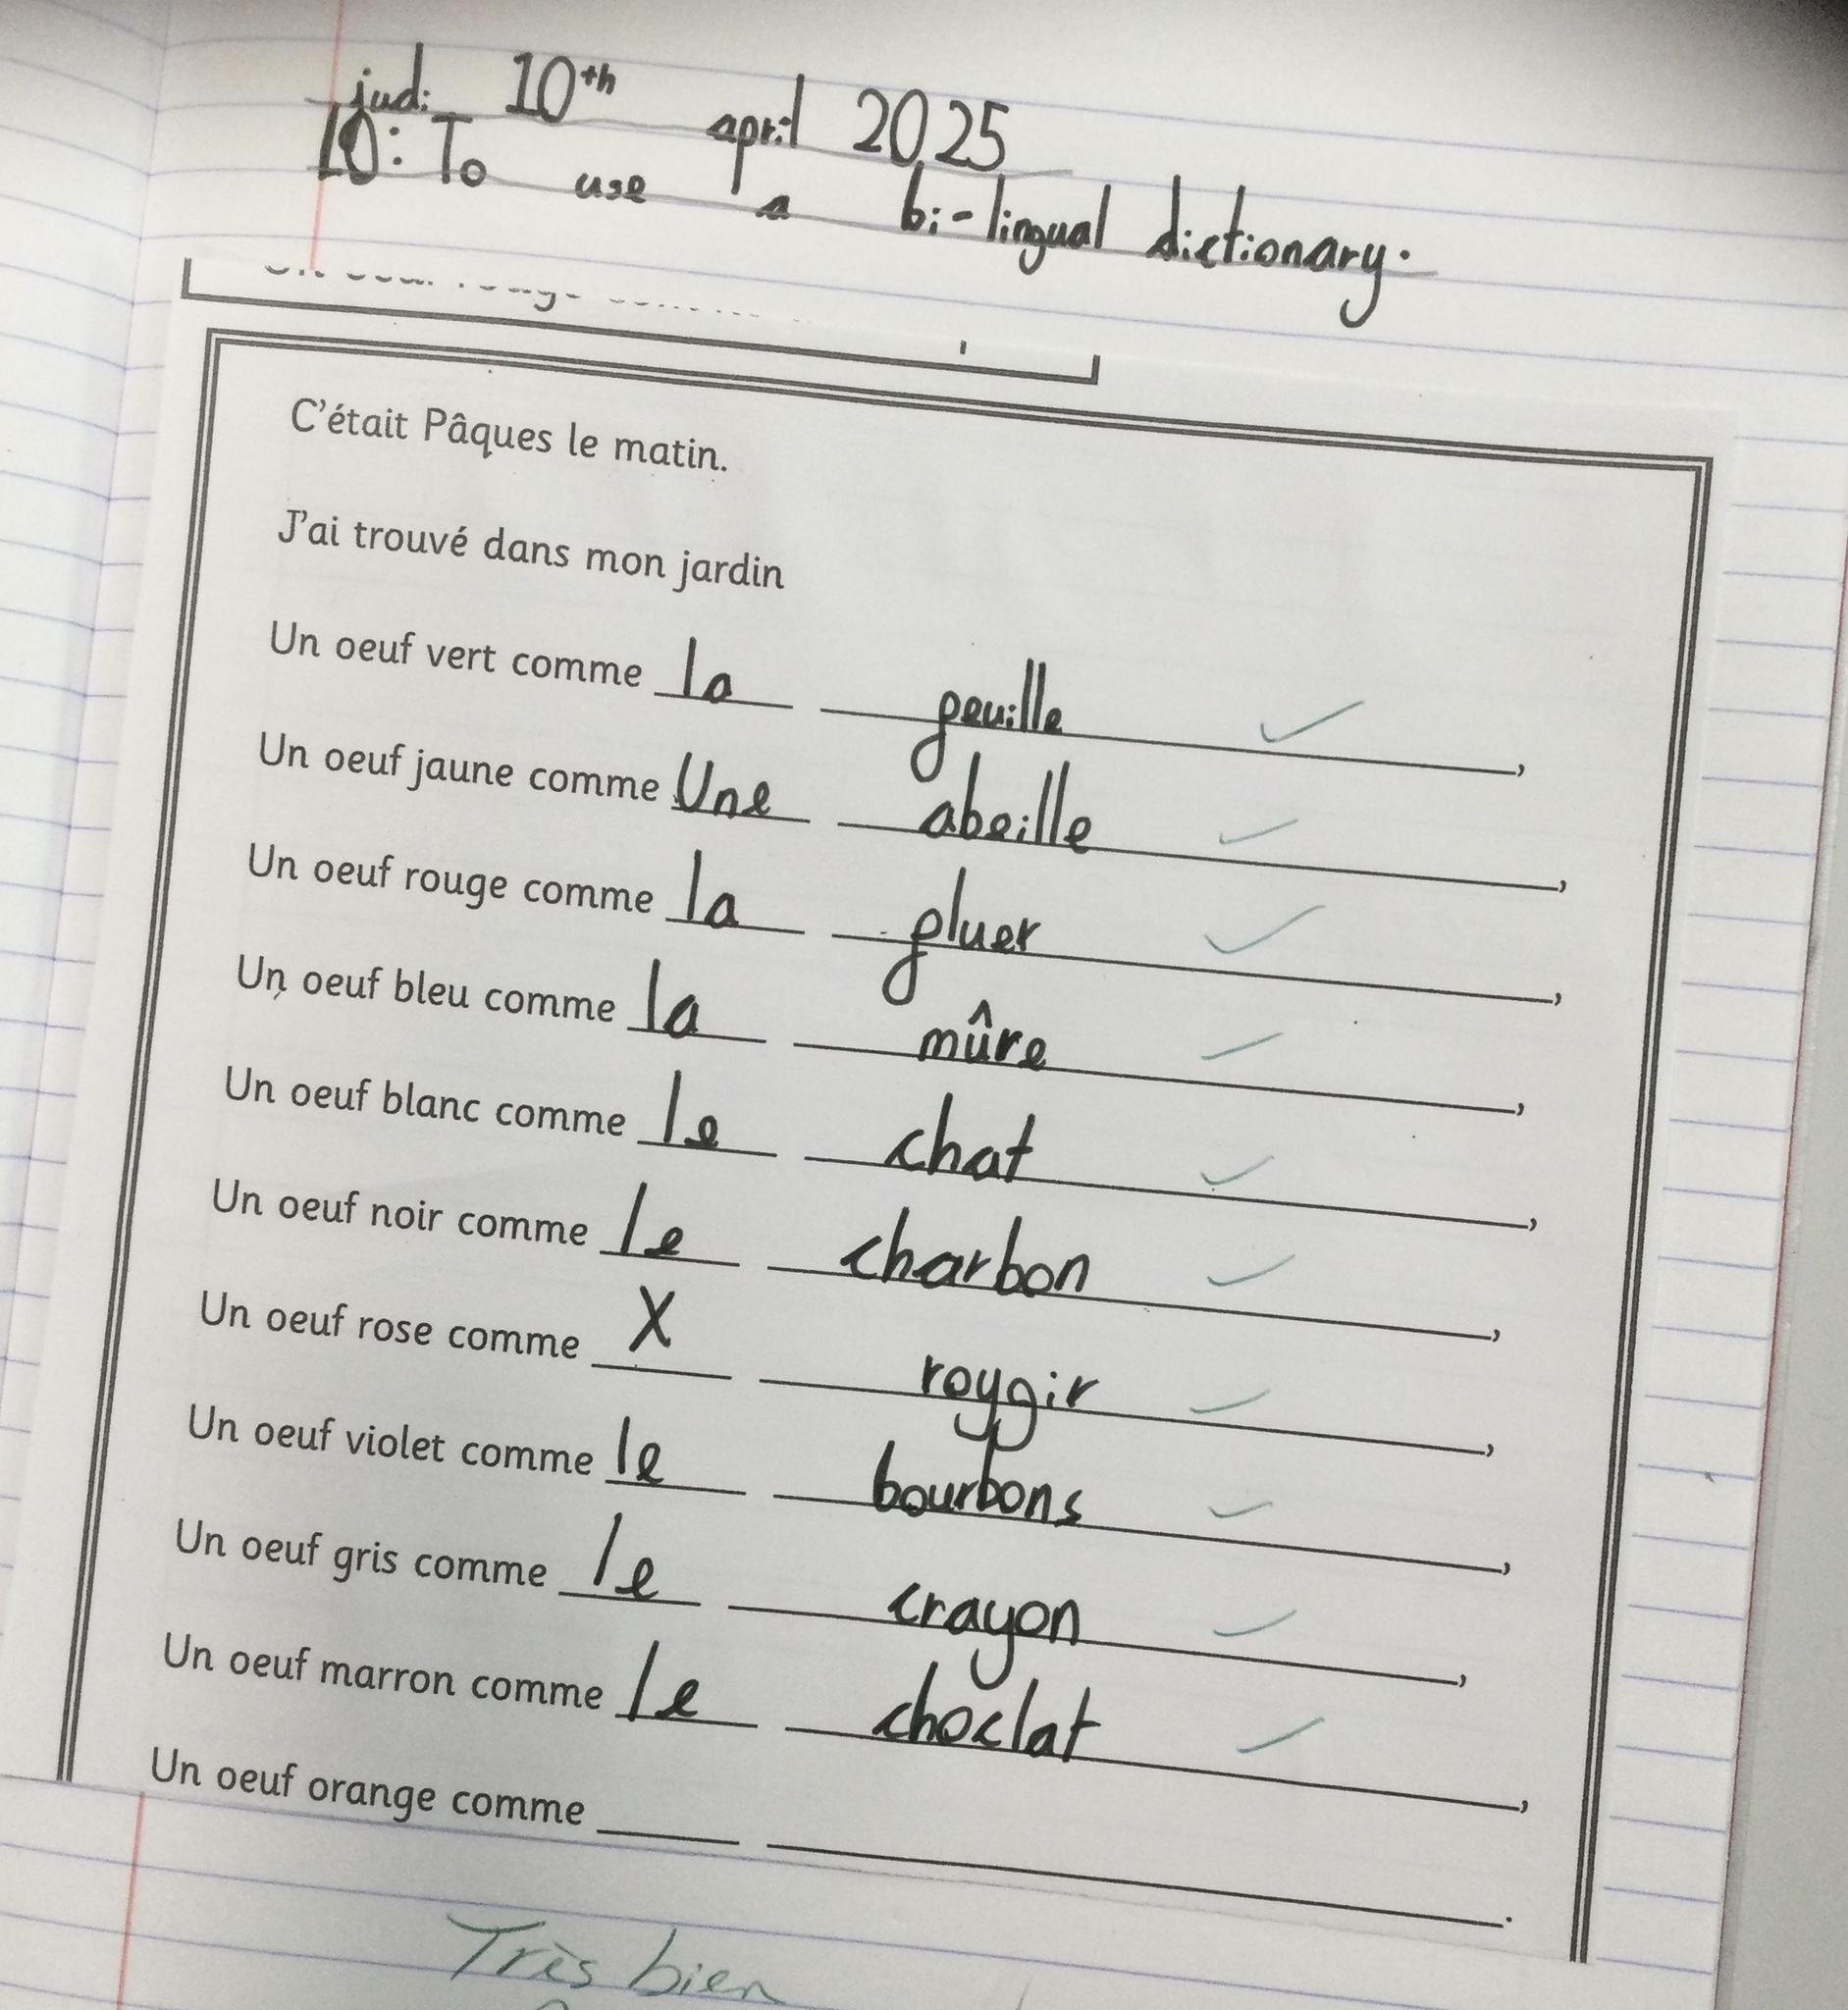 judi 10th april 2025
LO: To use a bi-lingual dictionary.
C'était Pâques le matin.
J'ai trouvé dans mon jardin
Un oeuf vert comme la feuille,
Un oeuf jaune comme Une abeille,
Un oeuf rouge comme la fluer,
Un oeuf bleu comme la mûre,
Un oeuf blanc comme le chat,
Un oeuf noir comme le charbon,
Un oeuf rose comme X roygir,
Un oeuf violet comme le bourbons,
Un oeuf gris comme le crayon,
Un oeuf marron comme le choclat,
Un oeuf orange comme ____ ____.
Très bien